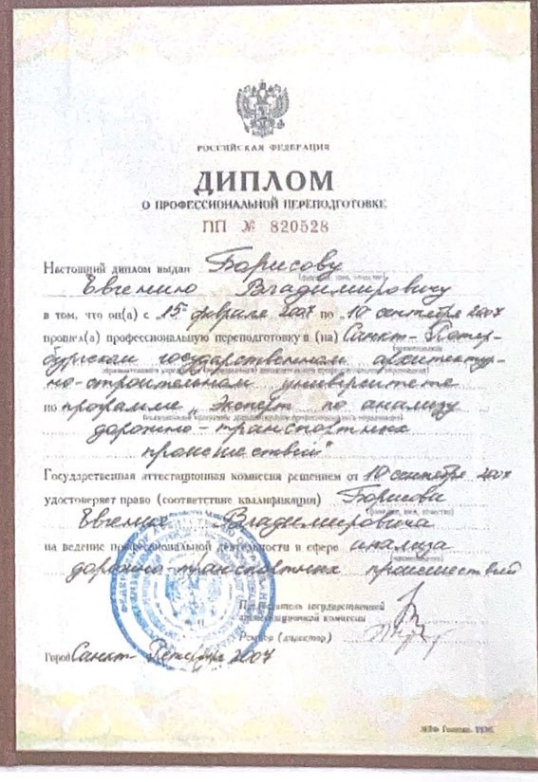 РОССИЙСКАЯ ФЕДЕРАЦИЯ
ДИПЛОМ
О ПРОФЕССИОНАЛЬНОЙ ПЕРЕПОДГОТОВКЕ
ПП № 820528
Настоящий диплом выдан Борисову
(фамилия, имя, отчество)
Евгению Владимировичу
в том, что он(а) с 15 февраля 2007 по 10 сентября 2007
прошел(а) профессиональную переподготовку в (на) Санкт-Петер-
бургском государственном архитектур-
но-строительном университете
по программе „Эксперт по анализу
дорожно-транспортных
происшествий"
Государственная аттестационная комиссия решением от 10 сентября 2007
удостоверяет право (соответствие квалификации) Борисова
(фамилия, имя, отчество)
Евгения Владимировича
на ведение профессиональной деятельности в сфере анализа
дорожно-транспортных происшествий
Председатель государственной
аттестационной комиссии
Ректор (директор)
Город Санкт-Петербург 2007